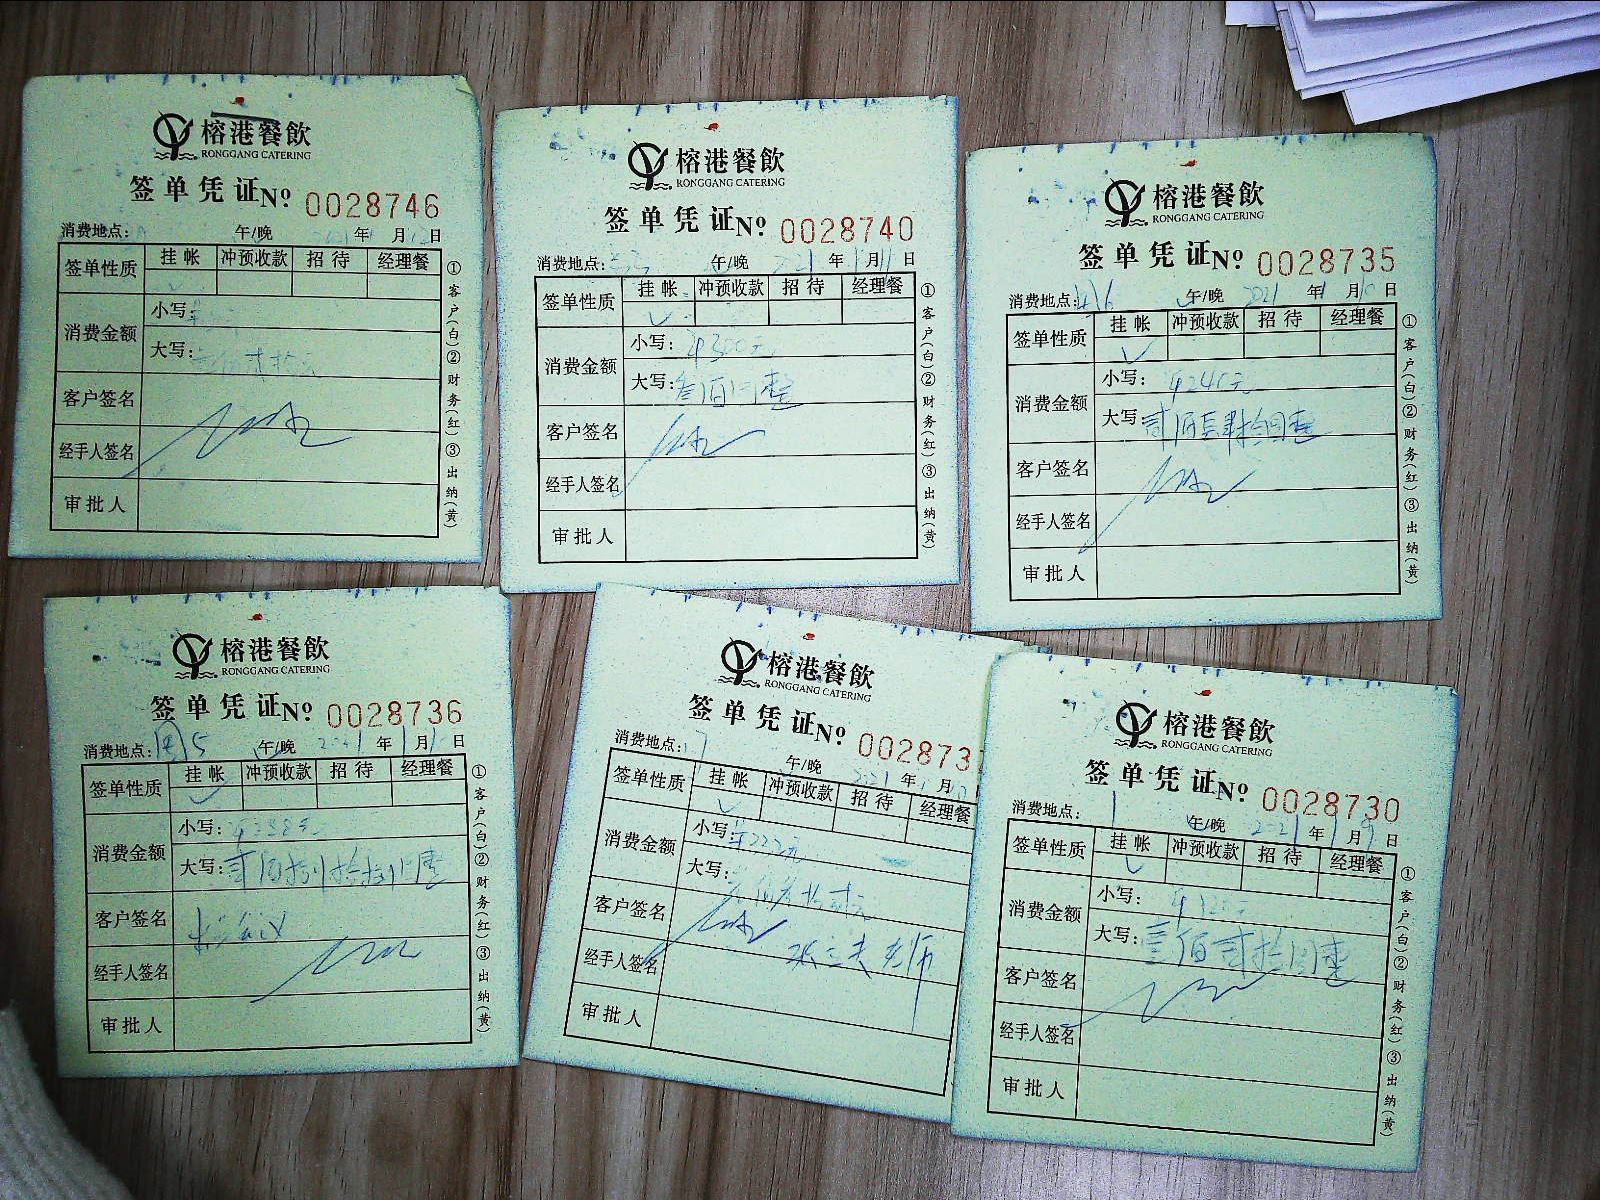 榕港餐飲
RONGGANG CATERING
签单凭证 Nº 0028746
消费地点: 午/晚 年 月 日
签单性质 挂帐 冲预收款 招待 经理餐
消费金额 小写:
大写:
客户签名
经手人签名
审批人
①客户(白)②财务(红)③出纳(黄)
榕港餐飲
RONGGANG CATERING
签单凭证 Nº 0028740
消费地点: 午/晚 2021 年 1 月 11 日
签单性质 挂帐 冲预收款 招待 经理餐
消费金额 小写: ¥300元
大写: 叁佰圆整
客户签名
经手人签名
审批人
①客户(白)②财务(红)③出纳(黄)
榕港餐飲
RONGGANG CATERING
签单凭证 Nº 0028735
消费地点: 416 午/晚 2021 年 1 月 10 日
签单性质 挂帐 冲预收款 招待 经理餐
消费金额 小写: ¥240元
大写: 贰佰肆拾圆整
客户签名
经手人签名
审批人
①客户(白)②财务(红)③出纳(黄)
榕港餐飲
RONGGANG CATERING
签单凭证 Nº 0028736
消费地点: 午/晚 2021 年 1 月 日
签单性质 挂帐 冲预收款 招待 经理餐
消费金额 小写:
大写: 贰佰捌拾捌圆整
客户签名
经手人签名
审批人
①客户(白)②财务(红)③出纳(黄)
榕港餐飲
RONGGANG CATERING
签单凭证 Nº 002873
消费地点: 午/晚 2021 年 月 日
签单性质 挂帐 冲预收款 招待 经理餐
消费金额 小写:
大写:
客户签名
老师
经手人签名
审批人
榕港餐飲
RONGGANG CATERING
签单凭证 Nº 0028730
消费地点: 午/晚 2021 年 1 月 9 日
签单性质 挂帐 冲预收款 招待 经理餐
消费金额 小写:
大写: 佰贰拾圆整
客户签名
经手人签名
审批人
①客户(白)②财务(红)③出纳(黄)